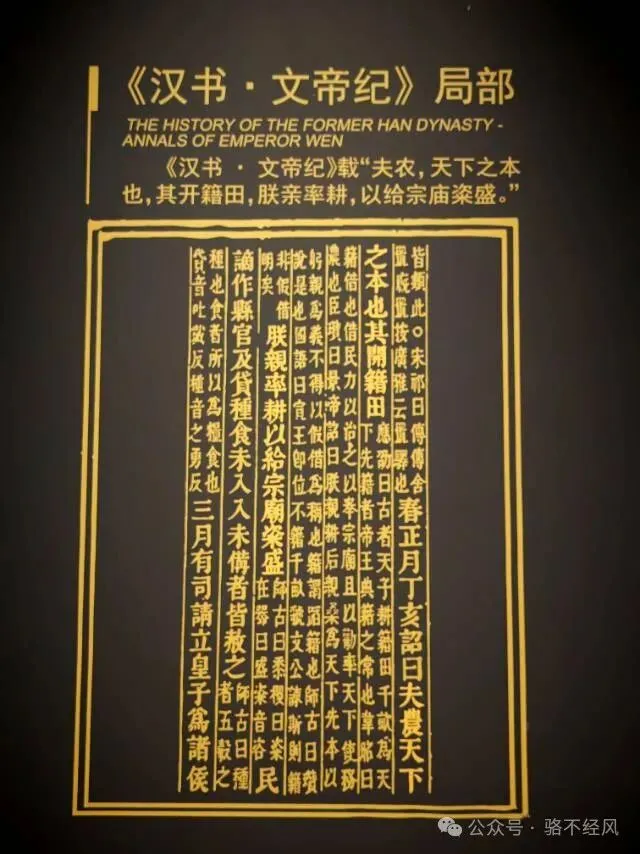 《汉书·文帝纪》局部
THE HISTORY OF THE FORMER HAN DYNASTY -
ANNALS OF EMPEROR WEN
《汉书·文帝纪》载“夫农，天下之本
也，其开籍田，朕亲率耕，以给宗庙粢盛。”
皆類此○宋祁曰傳傳舍
置廄置按廣雅云置驛也
春正月丁亥詔曰夫農天下
之本也其開籍田
應劭曰古者天子耕籍田千畝為天
下先籍者帝王典籍之常也韋昭曰
籍借也借民力以治之以奉宗廟且以勸率天下使務
農也臣瓚曰景帝詔曰朕親耕后親桑為天下先本以
躬親為義不得以假借為稱也籍謂蹈籍也師古曰瓚
說是也國語曰宣王即位不籍千畝虢文公諫斯則籍
非假借
明矣
朕親率耕以給宗廟粢盛
師古曰黍稷曰粢
在器曰盛粢音咨
民
謫作縣官及貸種食未入入未備者皆赦之
師古曰種
者五穀之
種也食者所以為糧食也
貸音吐戴反種音之勇反
三月有司請立皇子為諸侯
公众号·骆不经风